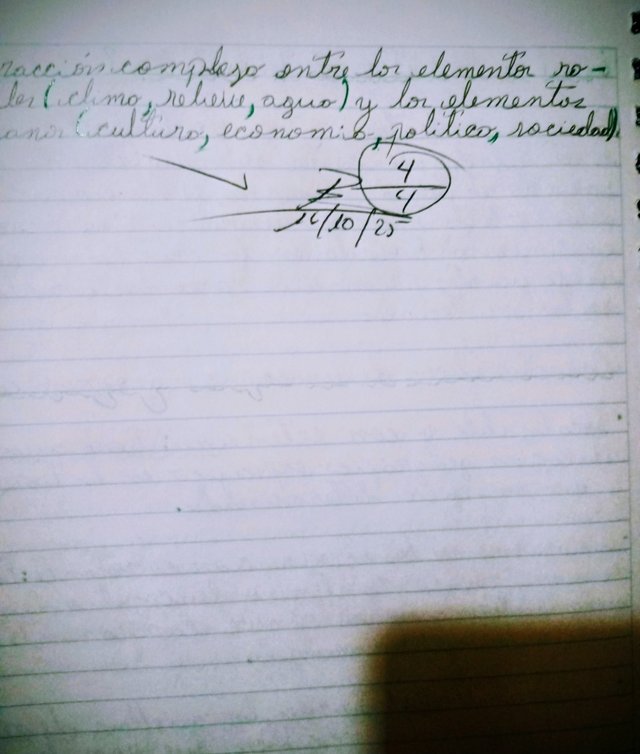 racción complejo entre los elementos na-
les (clima, relieve, agua) y los elementos
anos (cultura, economia, politica, sociedad).
4
4
16/10/25